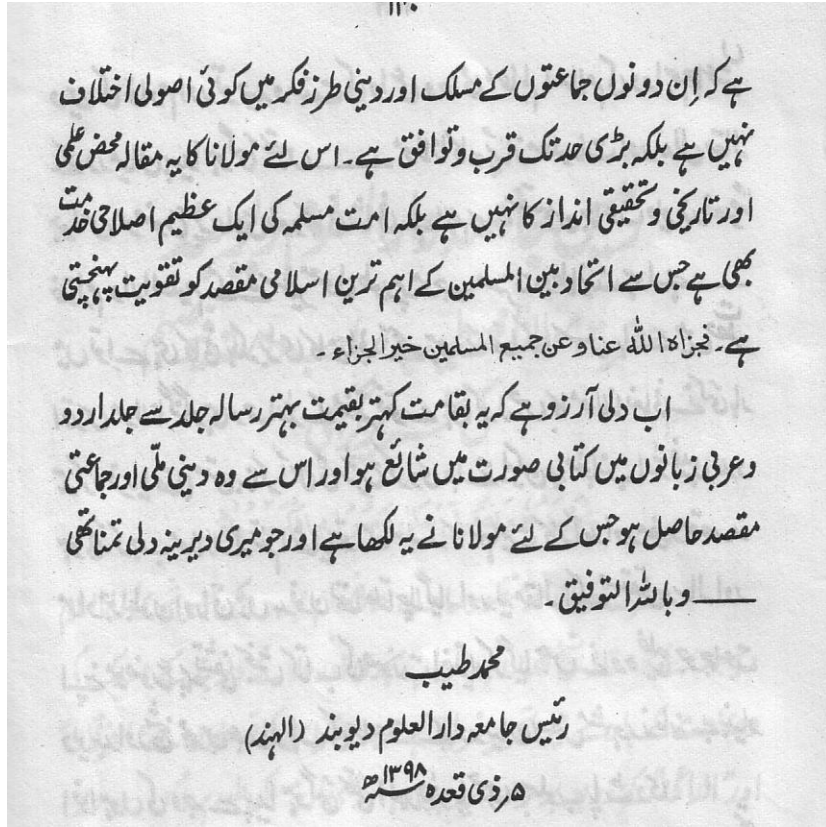 ۱۳۰
ہے کہ اِن دونوں جماعتوں کے مسلک اور دینی طرز فکر میں کوئی اصولی اختلاف
نہیں ہے بلکہ بڑی حد تک قرب و توافق ہے۔ اس لئے مولانا کا یہ مقالہ محض علمی
اور تاریخی و تحقیقی انداز کا نہیں ہے بلکہ امت مسلمہ کی ایک عظیم اصلاحی خدمت
بھی ہے جس سے اتحاد بین المسلمین کے اہم ترین اسلامی مقصد کو تقویت پہنچتی
ہے۔ فجزاہ اللہ عنا و عن جمیع المسلمین خیر الجزاء۔
اب دلی آرزو ہے کہ یہ بقامت کہتر بقیمت بہتر رسالہ جلد سے جلد اردو
و عربی زبانوں میں کتابی صورت میں شائع ہو اور اس سے وہ دینی ملّی اور جماعتی
مقصد حاصل ہو جس کے لئے مولانا نے یہ لکھا ہے اور جو میری دیرینہ دلی تمنا تھی
—— و باللہ التوفیق۔
محمد طیب
رئیس جامعہ دار العلوم دیوبند (الہند)
۵؍ ذی قعدہ ۱۳۹۸ھ